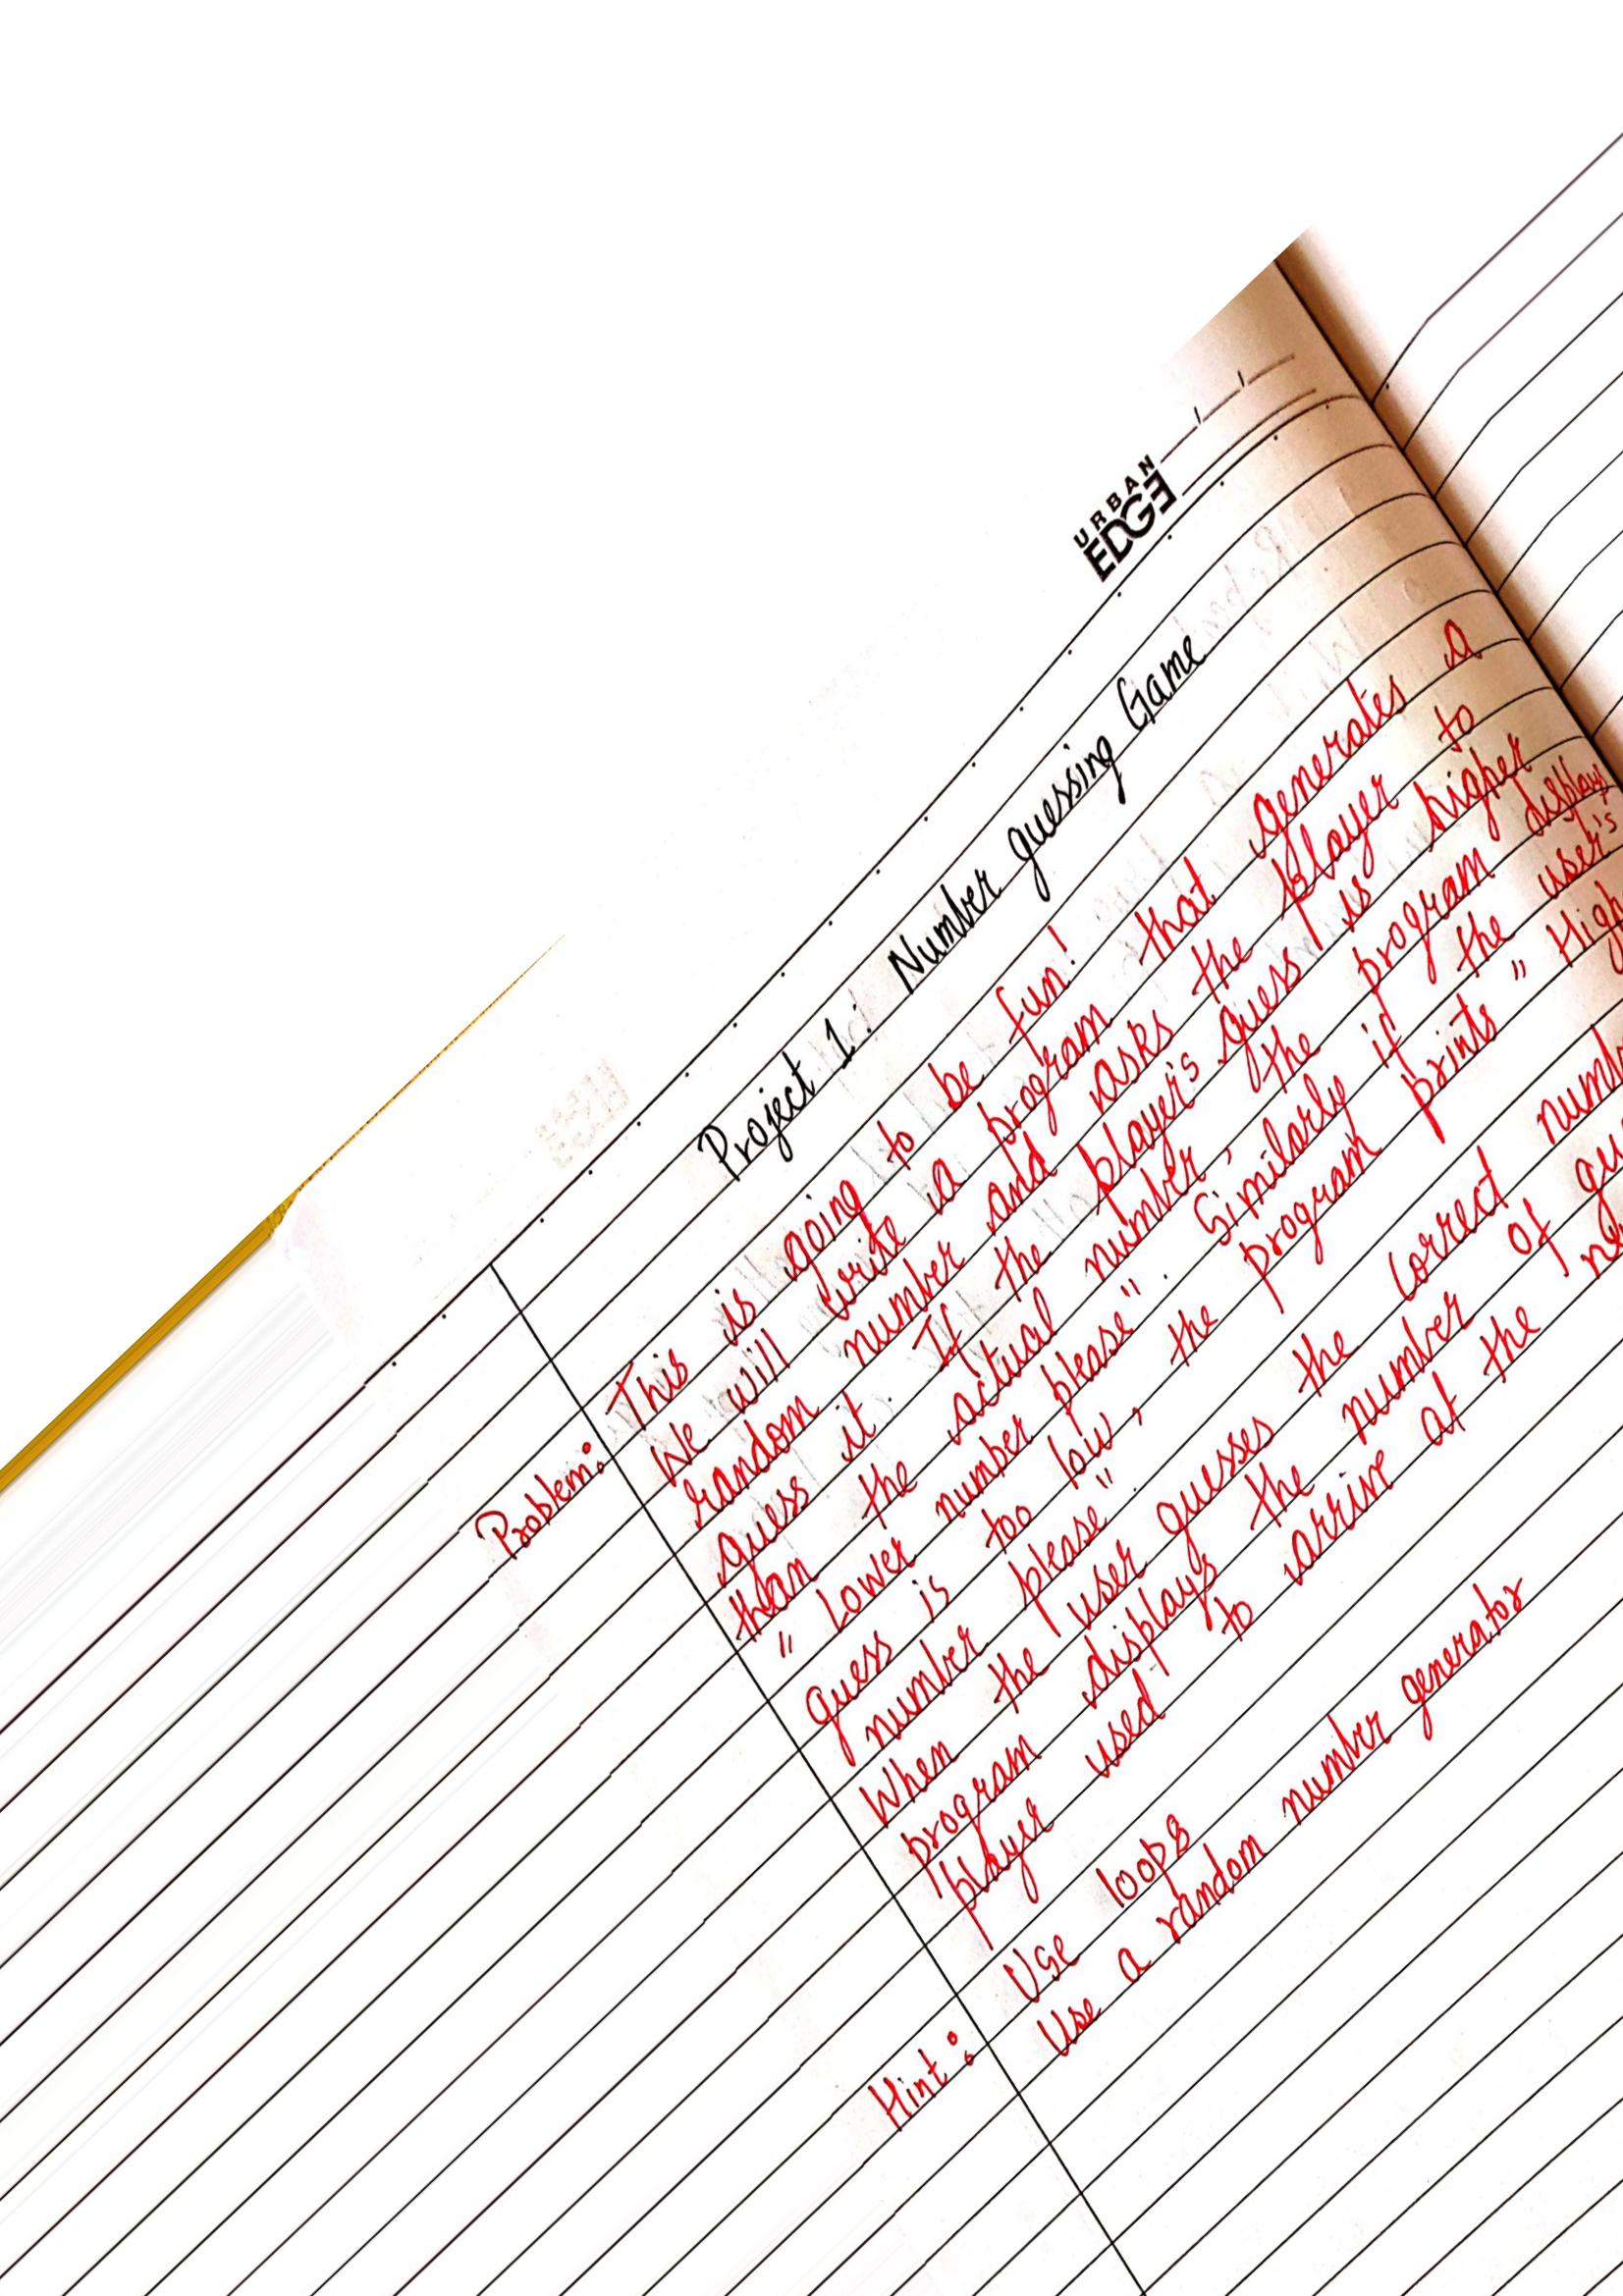 URBAN
EDGE
Project 1: Number guessing Game
Problem: This is going to be fun!
We will write a program that generates a
random number and asks the player to
guess it. If the player's guess is higher
than the actual number, the program displays
"Lower number please". Similarly if the user's
guess is too low, the program prints "High
number please".
When the user guesses the correct numb
program displays the number of gu
player used to arrive at the
Hint: Use loops
Use a random number generator